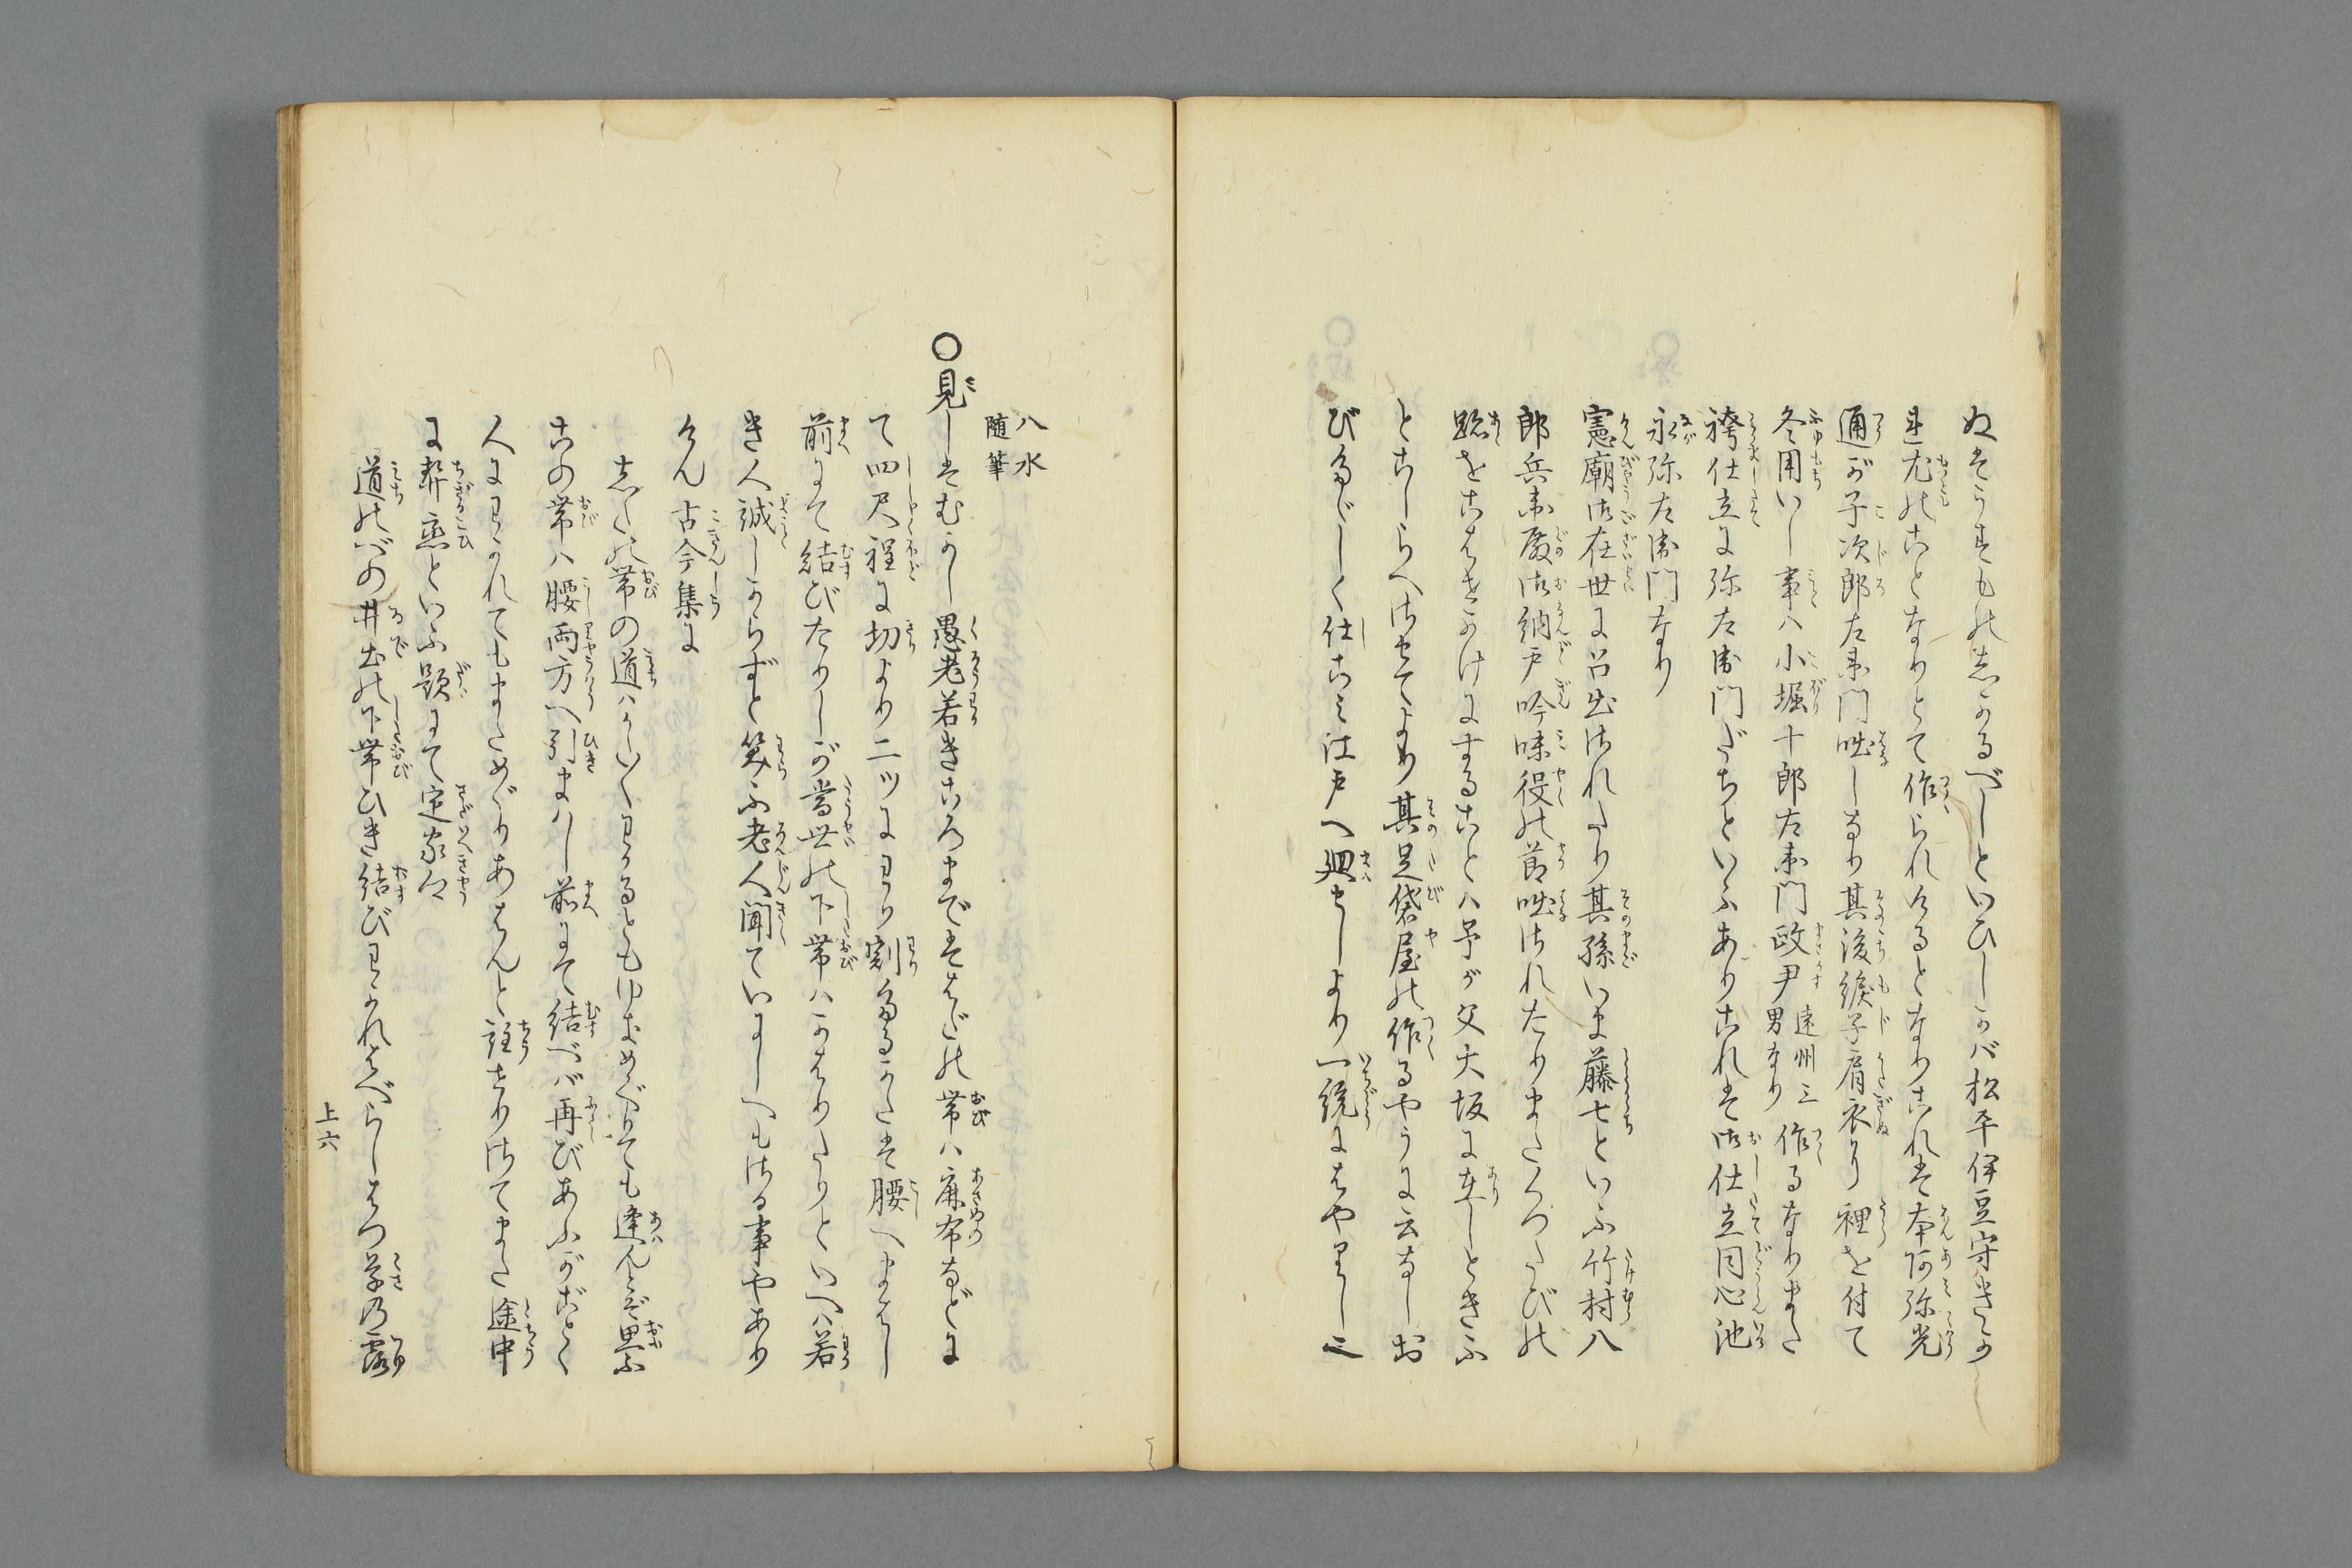 ぬきうすもの志かるべしといひしかバ松平伊豆守きか
れ尤のことなりとて作られけるとなりこれは本阿弥光
通が子次郎左衛門咄しなり其後綟子肩衣より裡を付て
冬用いし事ハ小堀十郎左衛門政尹遠州三男なり作るなりまた
袴仕立に弥左衛門だちといふありこれは御仕立同心池
永弥左衛門なり
憲廟御在世に召出されたり其孫いま藤七といふ竹村八
郎兵衛殿御納戸吟味役の節咄されたりまたくつたびの
跡をこはぜかけにすることハ予が父大坂に在しときふ
とこしらへさせてより其足袋屋の作るやうに云なしお
びたゞしく仕こみ江戸へ廻せしより一統にはやりし也
八水
随筆
○見しはむかし愚老若きころまでははだの帯ハ麻布などに
て四尺程に切より二ツにわり割たるかたは腰へまはし
前にて結びたりしが当世の下帯ハかはりたりといへハ若
き人誠しからずと笑ふ老人聞ていにしへもさる事やあり
けん古今集に
志たの帯の道ハかたがたわかるとも行めぐりても逢んとぞ思ふ
この帯ハ腰両方へ引まハし前にて結べバ再びあふがごとく
人にわかれてもまためぐりあはんと註せりさてまた途中
に契恋といふ題にて定家卿
道のべの井出の下帯ひき結びわすれはべらしはつ草の露
上六